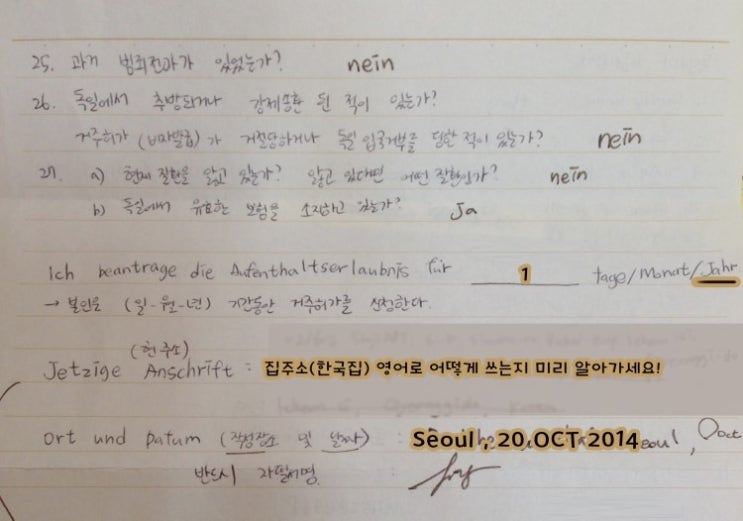 25. 과거 범죄전과가 있었는가? nein
26. 독일에서 추방되거나 강제송환 된 적이 있는가?
거주허가 (비자발급)가 거절당하거나 독일 입국거부를 당한 적이 있는가? nein
27. a) 현재 질환을 앓고 있는가? 앓고 있다면 어떤 질환인가? nein
b) 독일에서 유효한 보험을 소지하고 있는가? Ja
Ich beantrage die Aufenthaltserlaubnis für 1 tage/Monat/Jahr
→ 본인은 (일-월-년) 기간동안 거주허가를 신청한다.
(현주소)
Jetzige Anschrift : 집주소(한국집) 영어로 어떻게 쓰는지 미리 알아가세요!
Ort und Datum (작성장소 및 날짜) : Seoul , 20 OCT 2014 eoul,
반드시 자필서명